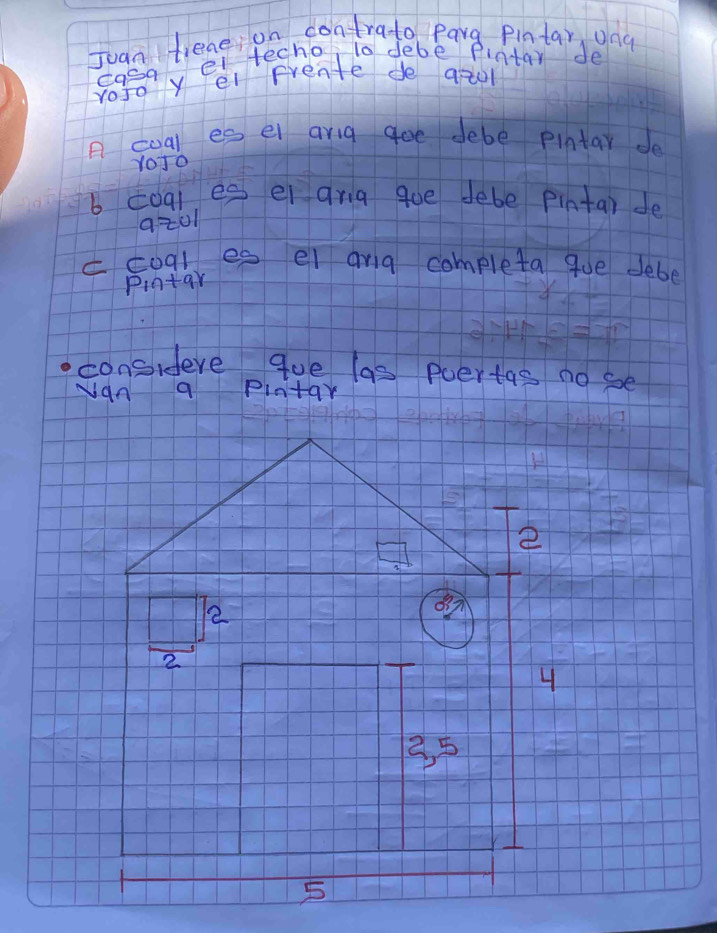 Juan tiene un contrato para pintar una
casa el techo lo debe pintar de
rojo y el frente de azul
A cual es el aria que debe pintar de
rojo
b cual es el aria que debe pintar de
azul
C cual es el aria completa que debe
pintar
• considere que las puertas no se
van a pintar
2
2
2
4
2,5
5